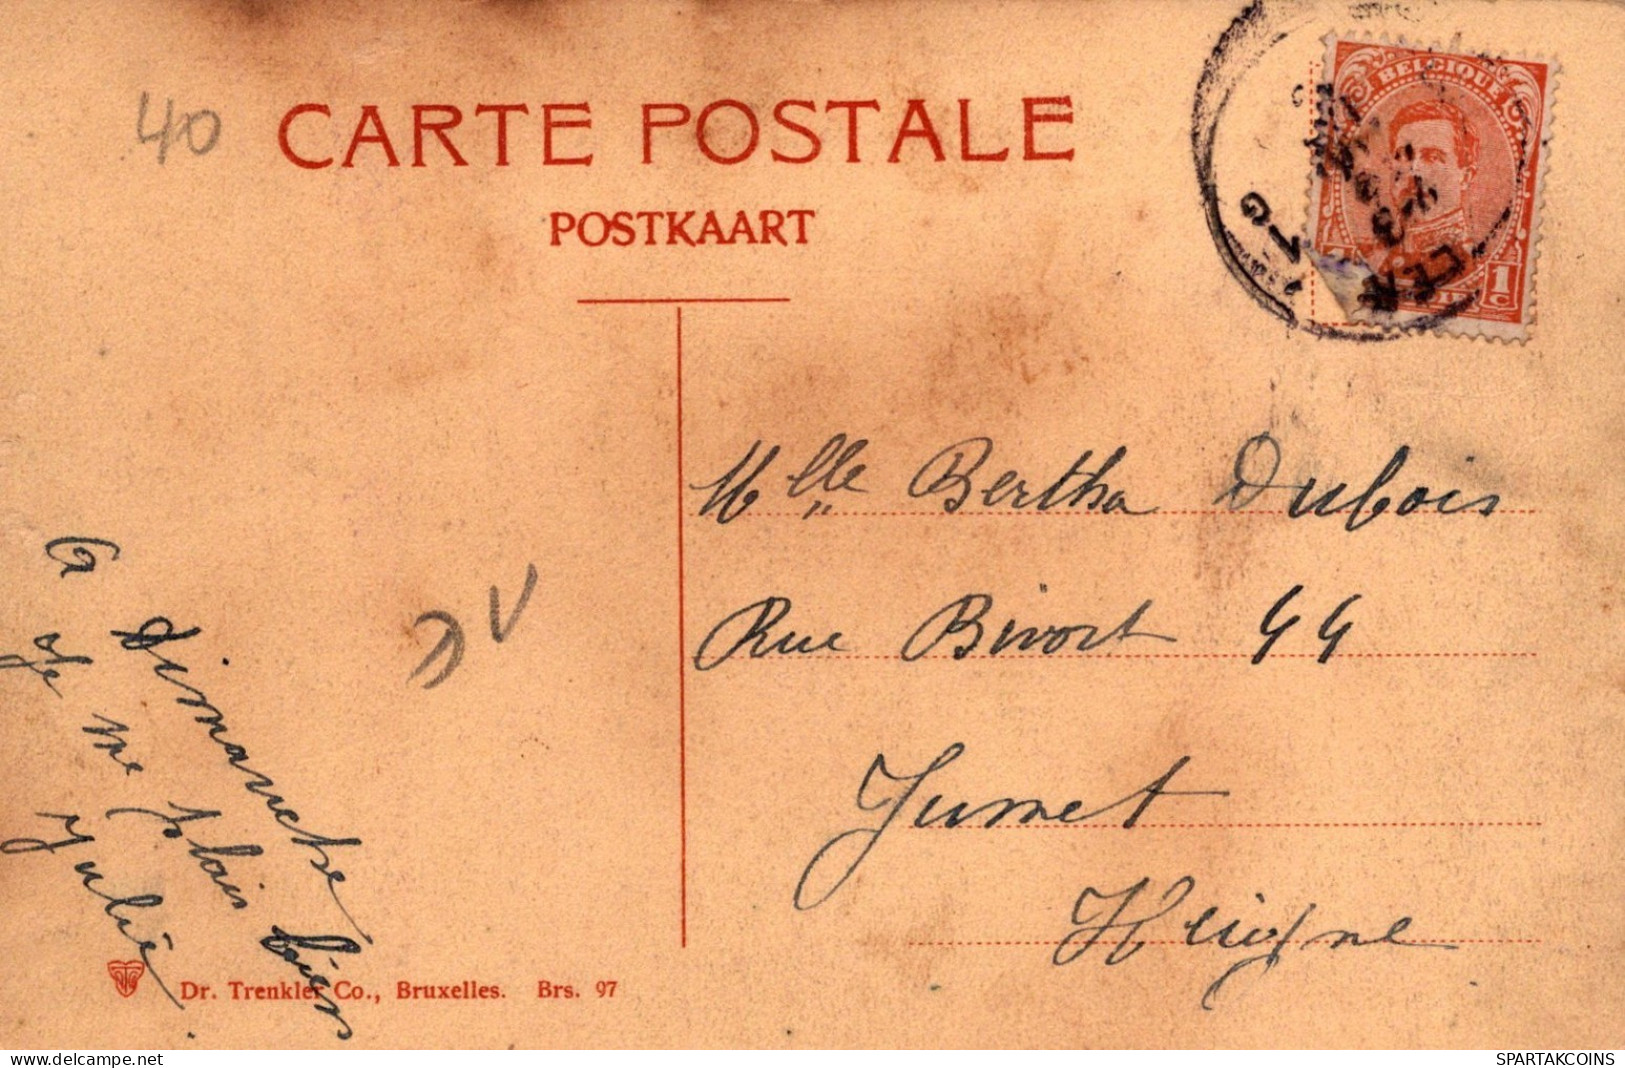 40
CARTE POSTALE
POSTKAART
BELGIQUE
1c
Mlle Bertha Dubois
Rue Bivort 44
Jumet
Heigne
A Dimanche
Je me plais bien
Julie
Dr. Trenkler Co., Bruxelles. Brs. 97
delcampe.net
SPARTAKCOINS